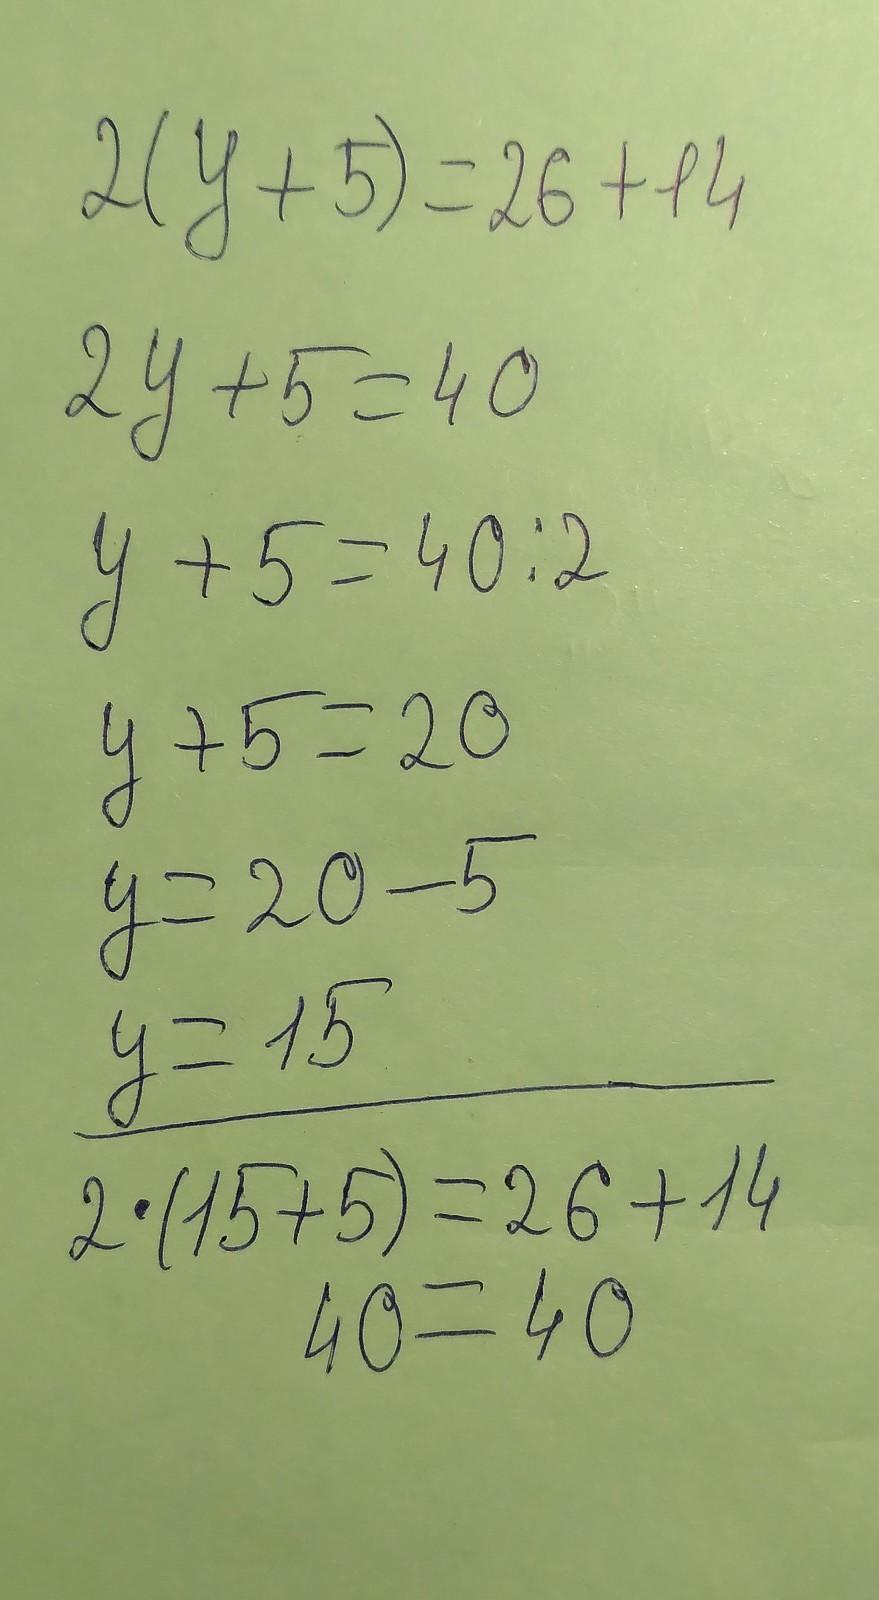 2(y+5)=26+14
2y+5=40
y+5=40:2
y+5=20
y=20-5
y=15
2·(15+5)=26+14
40=40